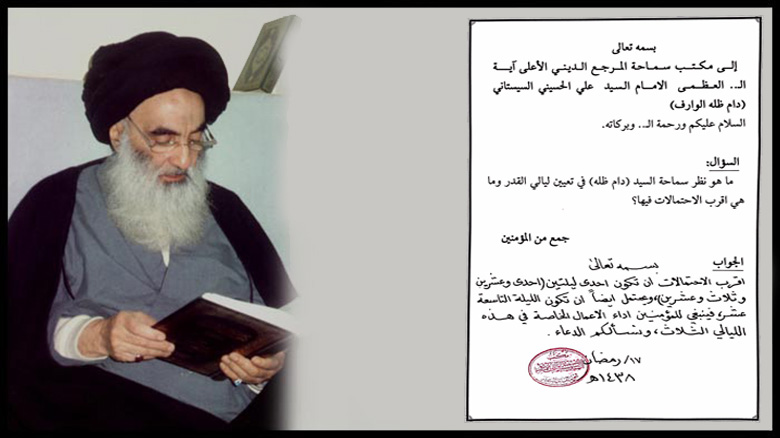 بسمه تعالى
إلى مكتب سماحة المرجع الديني الأعلى آية
الـ.. العظمى الامام السيد علي الحسيني السيستاني
(دام ظله الوارف)
السلام عليكم ورحمة الـ.. وبركاته.
السؤال:
ما هو نظر سماحة السيد (دام ظله) في تعيين ليالي القدر وما
هي اقرب الاحتمالات فيها؟
جمع من المؤمنين
الجواب
بسمه تعالى
اقرب الاحتمالات ان تكون احدى ليلتين (احدى وعشرين
وثلاث وعشرين)، ويحتمل ايضاً ان تكون الليلة التاسعة
عشر، فينبغي للمؤمنين اداء الاعمال الخاصة في هذه
الليالي الثلاث، ونسألكم الدعاء.
١٧/رمضان
١٤٣٨هـ